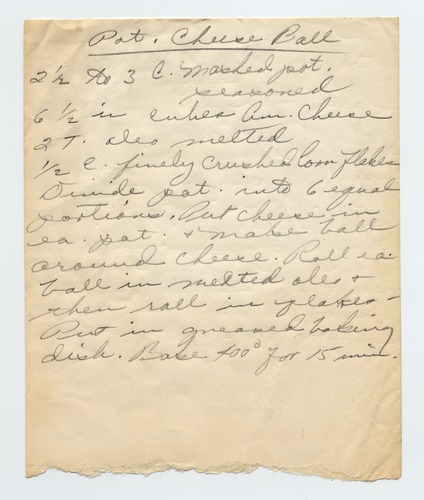 Pot. Cheese Ball
2 1/2 to 3 C. Mashed pot.
seasoned
6 1/2 in cubes Am. Cheese
2 T. oleo melted
1/2 C. finely crushed Corn flakes
Divide pot. into 6 equal
portions. Put cheese in
ea. pot. & make ball
around cheese. Roll ea.
ball in melted oleo &
then roll in flakes -
Put in greased baking
dish. Base 400° for 15 min.